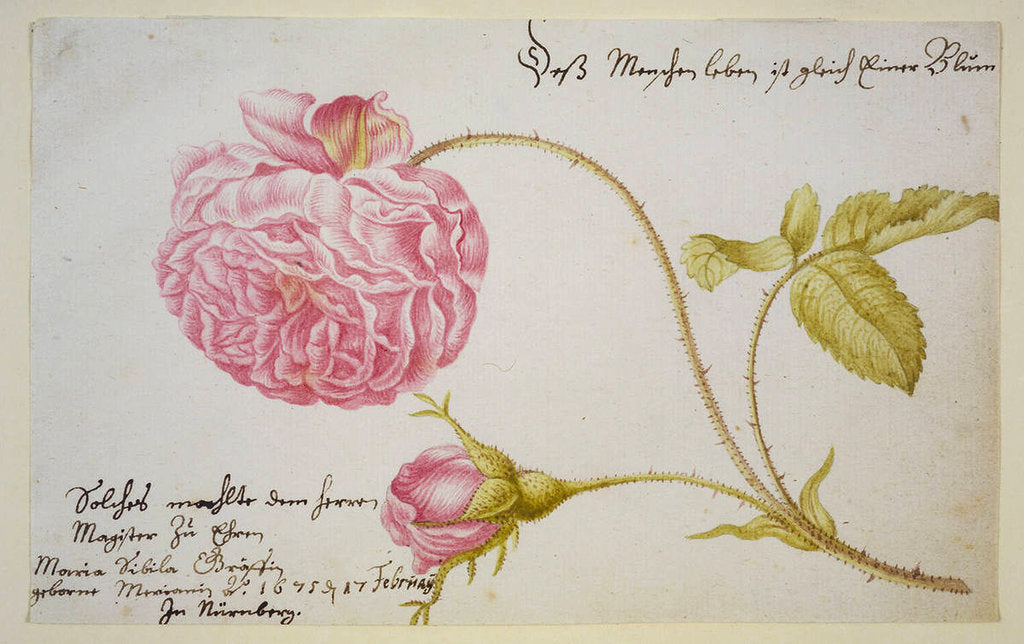 Deß Menschen leben ist gleich Einer Blum
Solches mahlte dem herren
Magister Zu Ehren
Maria Sibila Gräffin
geborne Merianin A: 1675 d 17 Februarij
In Nürnberg.